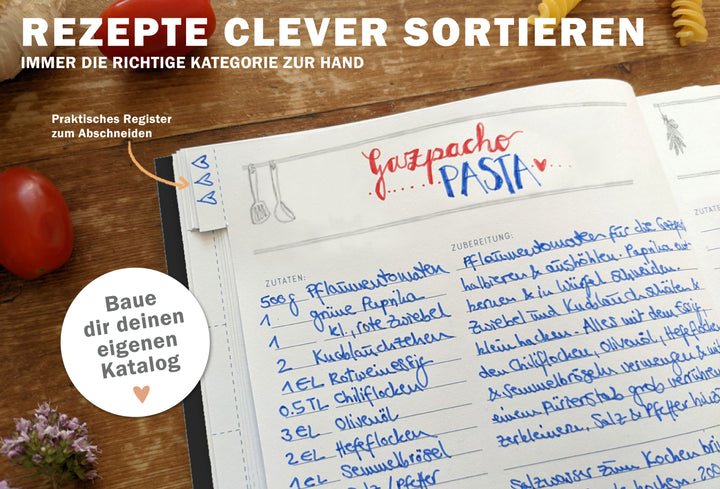 REZEPTE CLEVER SORTIEREN
IMMER DIE RICHTIGE KATEGORIE ZUR HAND
Praktisches Register
zum Abschneiden
Gazpacho
PASTA
ZUTATEN:
500g Pflaumentomaten
1 grüne Paprika
1 kl., rote Zwiebel
2 Knoblauchzehen
1 EL Rotweinessig
0.5 TL Chiliflocken
3 EL Olivenöl
2 EL Hefeflocken
1 EL Semmelbrösel
Salz / Pfeffer
ZUBEREITUNG:
Pflaumentomaten für die
halbieren & aushöhlen. Paprika
kernen & in Würfel schneiden.
Zwiebel und Knoblauch schälen &
klein hacken. Alles mit dem Essig,
den Chiliflocken, Olivenöl, Hefeflocken
& Semmelbröseln vermengen &
einem Pürierstab grob
zerkleinern. Salz & Pfeffer
Salzwasser zum Kochen
ZUTATEN
Baue
dir deinen
eigenen
Katalog